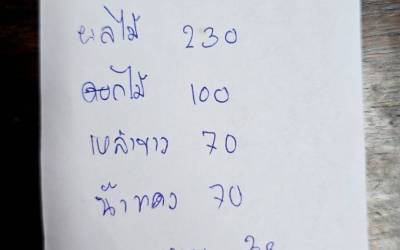 ผลไม้ 230
ดอกไม้ 100
เหล้าขาว 70
น้ำแดง 70